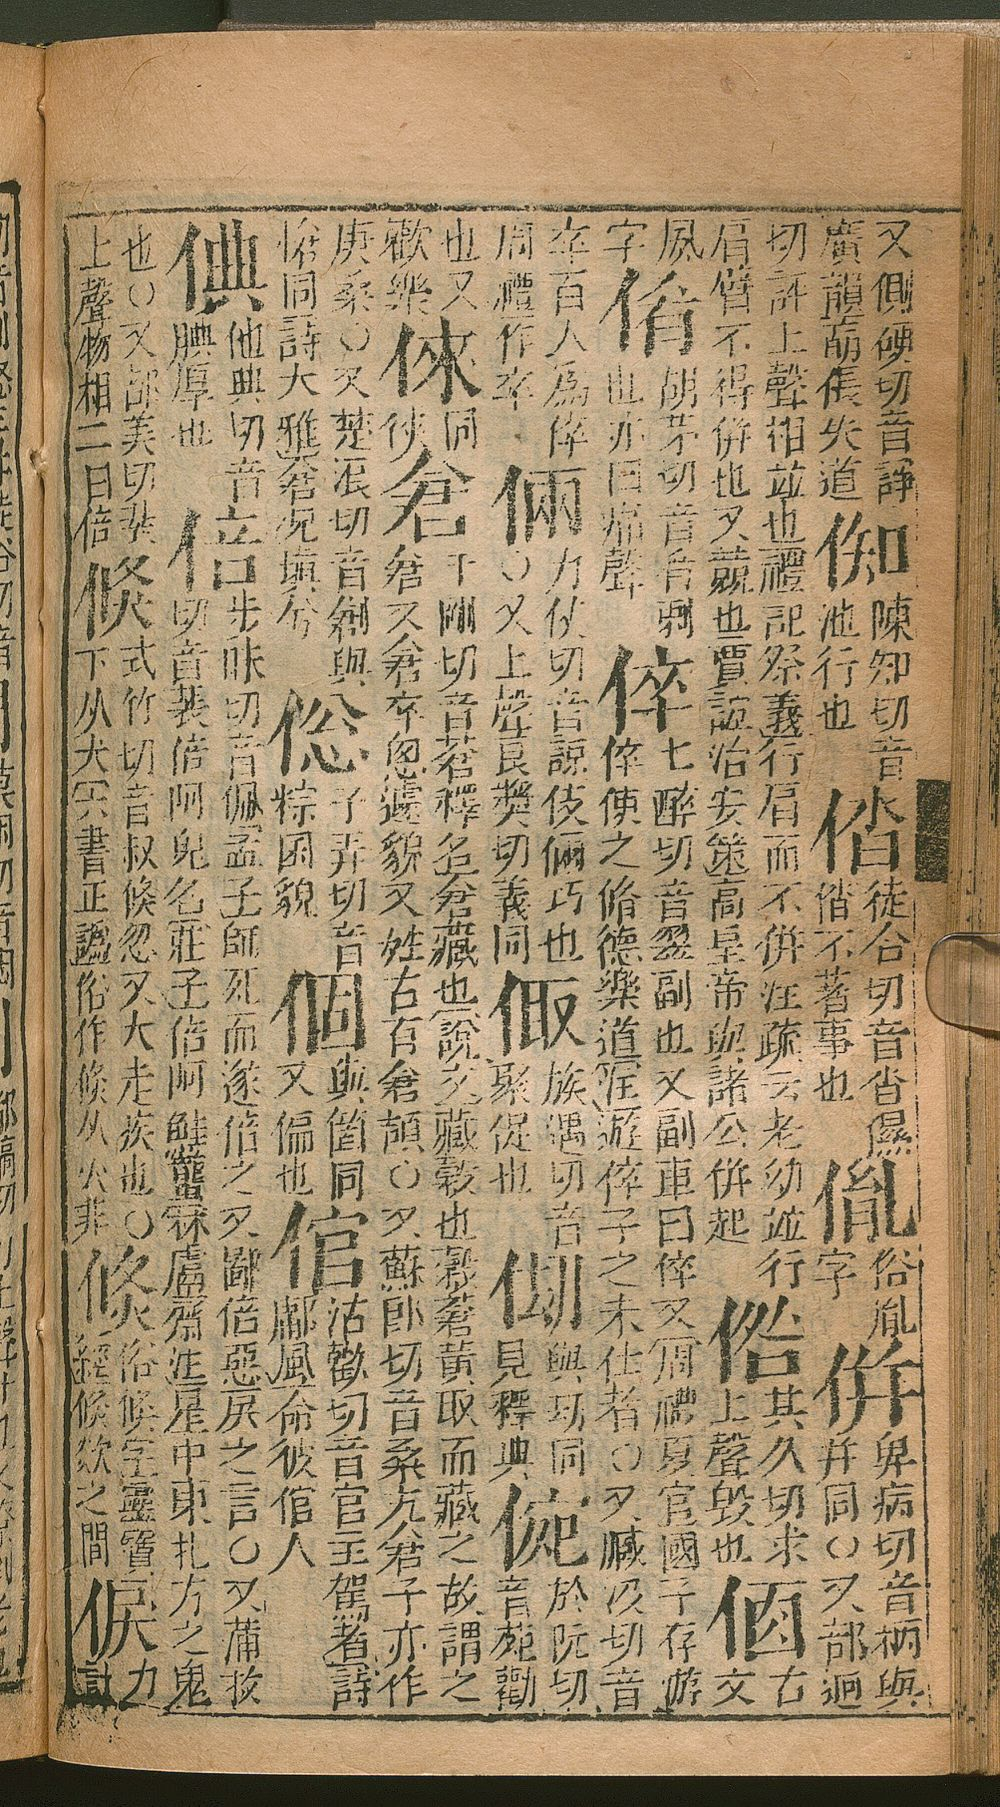 又側硬切音諍
廣韻𠊧倀失道
㑛
陳知切音
池行也
㑥
徒合切音沓儑
㑥不著事也
俗胤
字
倂
卑病切音柄與
幷同〇又部迥
切詳上聲相竝也禮記祭義行肩而不倂注疏云老幼竝行
肩臂不得倂也又競也賈誼治安策高皇帝與諸公倂起
俗
其久切求
上聲毀也
古文
夙
字
倄
胡茅切音肴剌
也亦曰痛聲
倅
七醉切音翠副也又副車曰倅又周禮夏官國子存游
倅使之脩德樂道注游倅子之未仕者〇又臧沒切音
卒百人爲倅
周禮作卒
倆
力仗切音諒伎倆巧也
〇又上聲良奬切義同
族遇切音
聚促也
與㓛同
見釋典
倇
於阮切
音苑勸
也又
歡樂
倈
同
倈
倉
千剛切音蒼釋名倉藏也說文藏穀也穀蒼黃取而藏之故謂之
倉又倉卒怱遽貌又姓古有倉頡〇又蘇郎切音桑亢倉子亦作
庚桑〇又楚浪切音創與
愴同詩大雅倉兄塡兮
倊
子弄切音
粽困貌
個
與箇同
又偏也
倌
沽歡切音官主駕者詩
鄘風命彼倌人
倎
他典切音
腆厚也
倍
步昧切音佩孟子師死而遂倍之又鄙倍惡戾之言〇又蒲枚
切音裴倍阿鬼名莊子倍阿鮭蠪冞盧齋注屋中東北方之鬼
也〇又部美切
上聲物相二曰倍
倏
式竹切音叔倏忽又大走疾也〇
下从犬六書正譌俗作倐从火非
倐
俗倏字靈寶
經倐欻之間
候
力
計